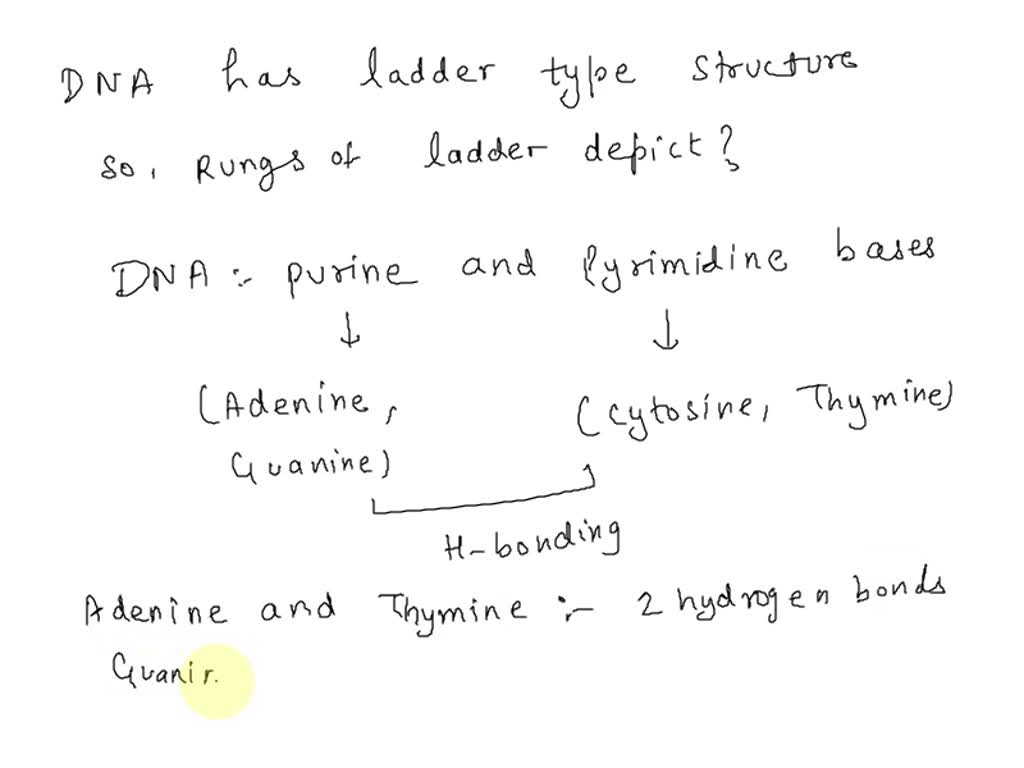 DNA has ladder type structure
so, Rungs of ladder depict?
DNA :- purine and Pyrimidine bases
(Adenine, (Cytosine, Thymine)
Guanine)
H-bonding
Adenine and Thymine :- 2 hydrogen bonds
Guanir